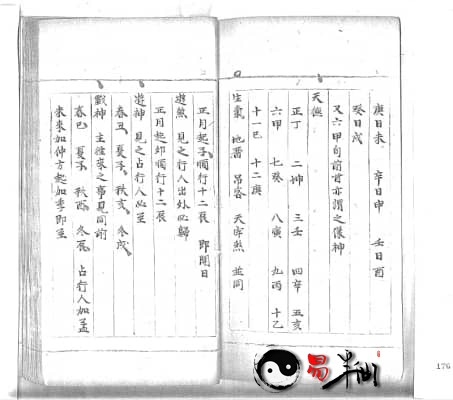 庚日未 辛日申 壬日酉
癸日戌
又六甲旬前者亦謂之儀神
天德
正丁 二坤 三壬 四辛 五亥
六甲 七癸 八寅 九丙 十乙
十一巳 十二庚
生氣 地醫 吊客 天喜煞 並同
正月起子順行十二辰 即開日
遊煞 見之行人出外必歸
正月起卯順行十二辰
遊神 見之占行人必至
春丑 夏子 秋亥 冬戌
戲神 主往來之事見同前
春巳 夏子 秋酉 冬辰 占行人如孟
未來如仲方起如季即至
易半仙
176